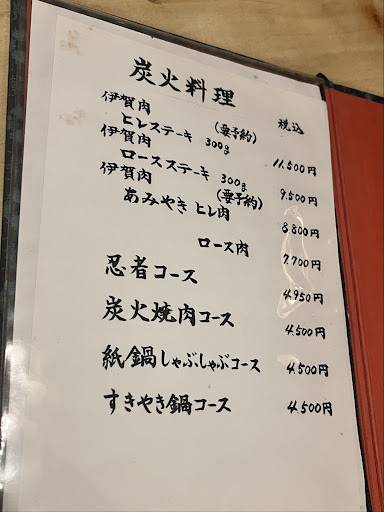 炭火料理
税込
伊賀肉
ヒレステーキ 300g (要予約) 11,500円
伊賀肉
ロースステーキ 300g 9,500円
伊賀肉 (要予約)
あみやき ヒレ肉 8,800円
ロース肉 7,700円
忍者コース 4,950円
炭火焼肉コース 4,500円
紙鍋しゃぶしゃぶコース 4,500円
すきやき鍋コース 4,500円